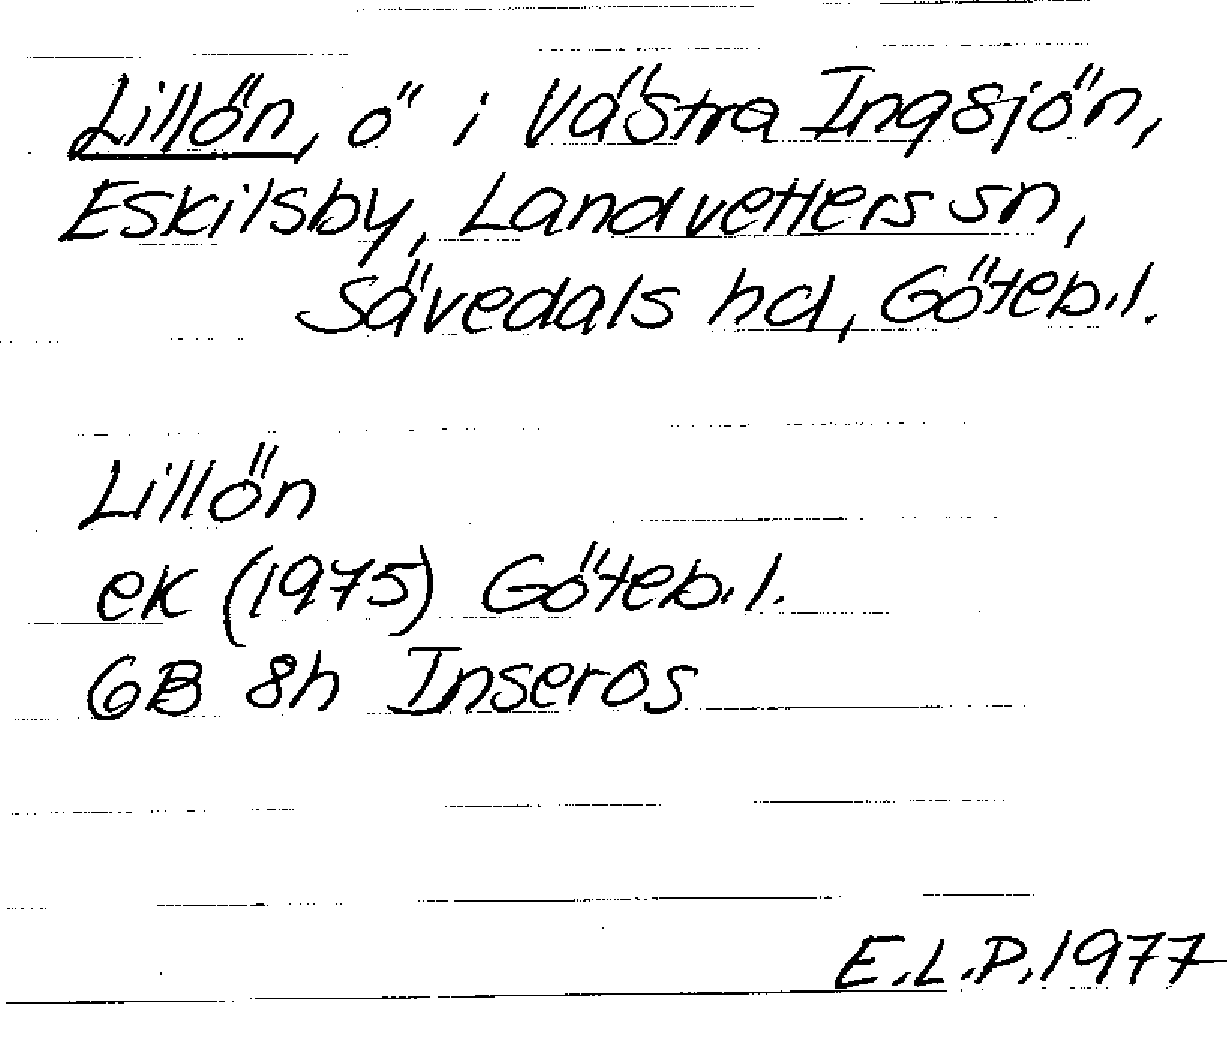 Lillön, ö i Västra Ingsjön,
Eskilsby, Landvetters sn,
Sävedals hd, Göteb.l.
Lillön
ek (1975) Göteb.l.
6B 8h Inseros
E.L.P.1977